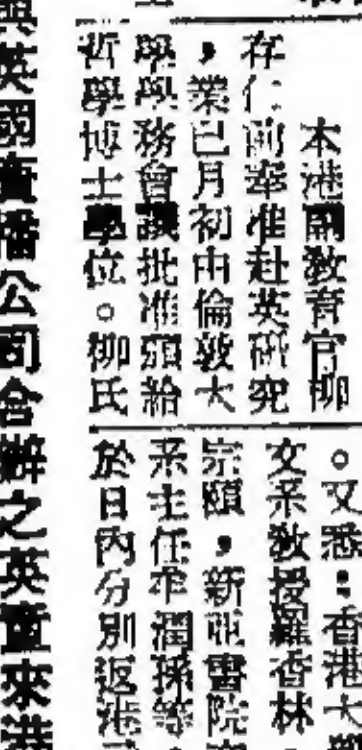 本港副教育官柳
存仁前奉准赴英研究
，業已月初由倫敦大
學學務會議批准頒給
哲學博士學位。柳氏
。又悉：香港大
文系教授羅香林
宗頤，新亞書院
系主任牟潤孫等
於日內分別返港
與英國廣播公司合辦之英童來港